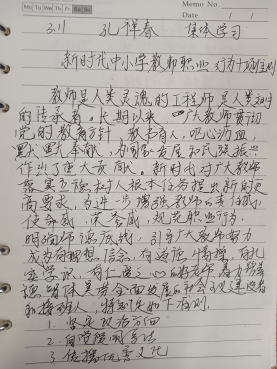 Mo Tu We Th Fr Sa Su
Memo No.
Date / /
3.11 孔祥春 集体学习
新时代中小学教师职业行为十项准则
教师是人类灵魂的工程师是人类文明
的传承者。长期以来 广大教师贯彻
党的教育方针，教书育人，呕心沥血，
默默奉献，为国家发展和民族振兴
作出了重大贡献。新时代对广大教师
落实立德树人根本任务提出新的更
高要求，为进一步增强教师的责任感，
使命感，荣誉感，规范职业行为，
明确师德底线，引导广大教师努力
成为有理想信念，有道德情操，有扎
实学识，有仁爱之心的好老师，着力培养
德智体美劳全面发展的社会主义建设者
和接班人，特制定如下准则。
1. 坚定政治方向
2. 自觉爱国守法
3. 传播优秀文化